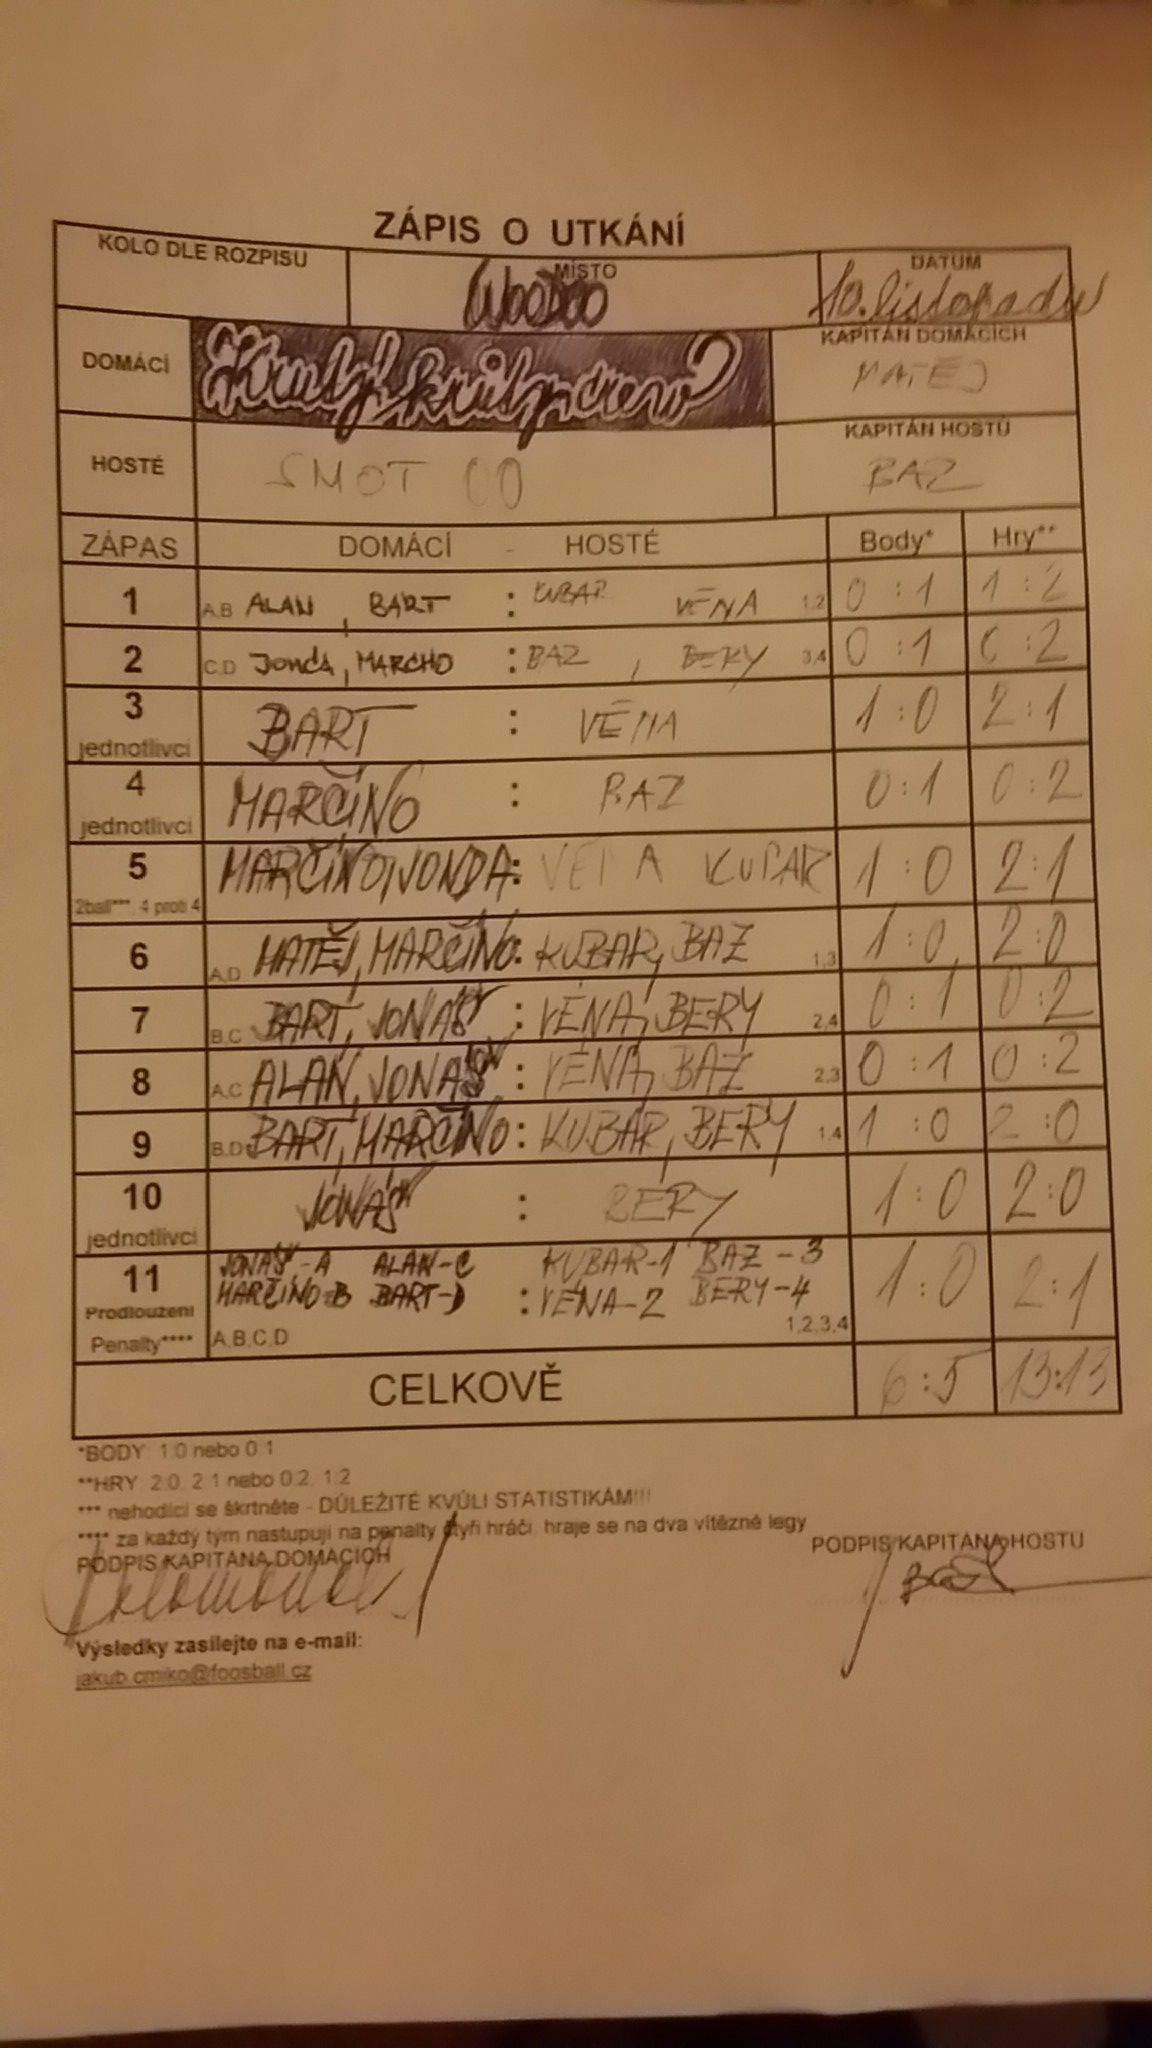 ZÁPIS O UTKÁNÍ
KOLO DLE ROZPISU MÍSTO DATUM
WOODOO 10. listopadu
DOMÁCÍ KAPITÁN DOMÁCÍCH
MATĚJ
HOSTÉ SMOT OO KAPITÁN HOSTŮ
BAZ
ZÁPAS DOMÁCÍ - HOSTÉ Body* Hry**
1 A,B ALAN, BART : KUBAR VÉNA 1,2 0:1 1:2
2 C,D JONDA, MARCHO : BAZ, BERY 3,4 0:1 0:2
3 jednotlivci BART : VÉNA 1:0 2:1
4 jednotlivci MARČINO : BAZ 0:1 0:2
5 2ball***, 4 proti 4 MARČINO, JONDA : VÉNA KUBAR 1:0 2:1
6 A,D MATĚJ, MARČINO : KUBAR, BAZ 1,3 1:0 2:0
7 B,C BART, JONÁŠ : VÉNA, BERY 2,4 0:1 0:2
8 A,C ALAN, JONÁŠ : VÉNA, BAZ 2,3 0:1 0:2
9 B,D BART, MARČINO : KUBAR, BERY 1,4 1:0 2:0
10 jednotlivci JONÁŠ : BERY 1:0 2:0
11 JONÁŠ-A ALAN-C KUBAR-1 BAZ-3
Prodloužení MARČINO-B BART-D : VÉNA-2 BERY-4 1:0 2:1
Penalty**** A,B,C,D 1,2,3,4
CELKOVĚ 6:5 13:13
*BODY 1:0 nebo 0:1
**HRY 2:0, 2:1 nebo 0:2, 1:2
*** nehodící se škrtněte - DŮLEŽITÉ KVŮLI STATISTIKÁM!!!
**** za každý tým nastupují na penalty čtyři hráči, hraje se na dva vítězné legy
PODPIS KAPITÁNA DOMÁCÍCH PODPIS KAPITÁNA HOSTŮ
Výsledky zasílejte na e-mail:
jakub.cmiko@foosball.cz